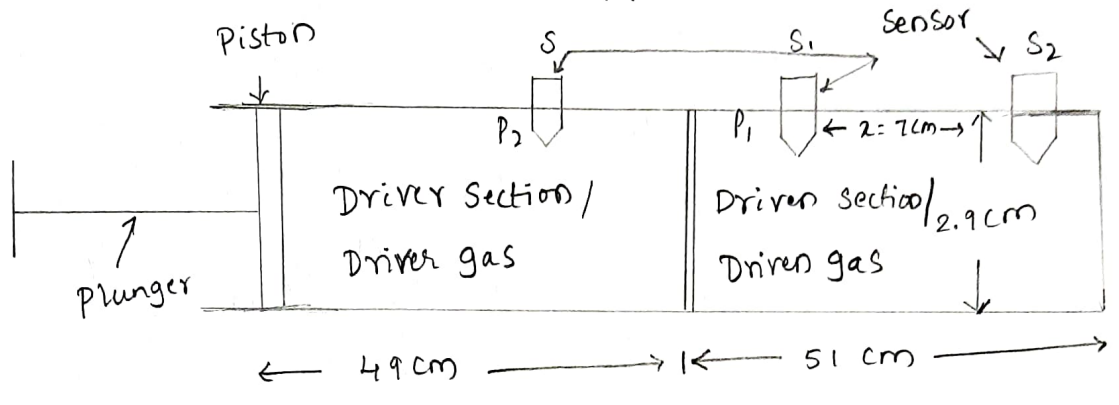 Piston
S
S₁
Sensor
S₂
P₂
P₁
2 = 7cm
Driver section/
Driver gas
Driven section/
Driven gas
2.9cm
Plunger
49 cm
51 cm